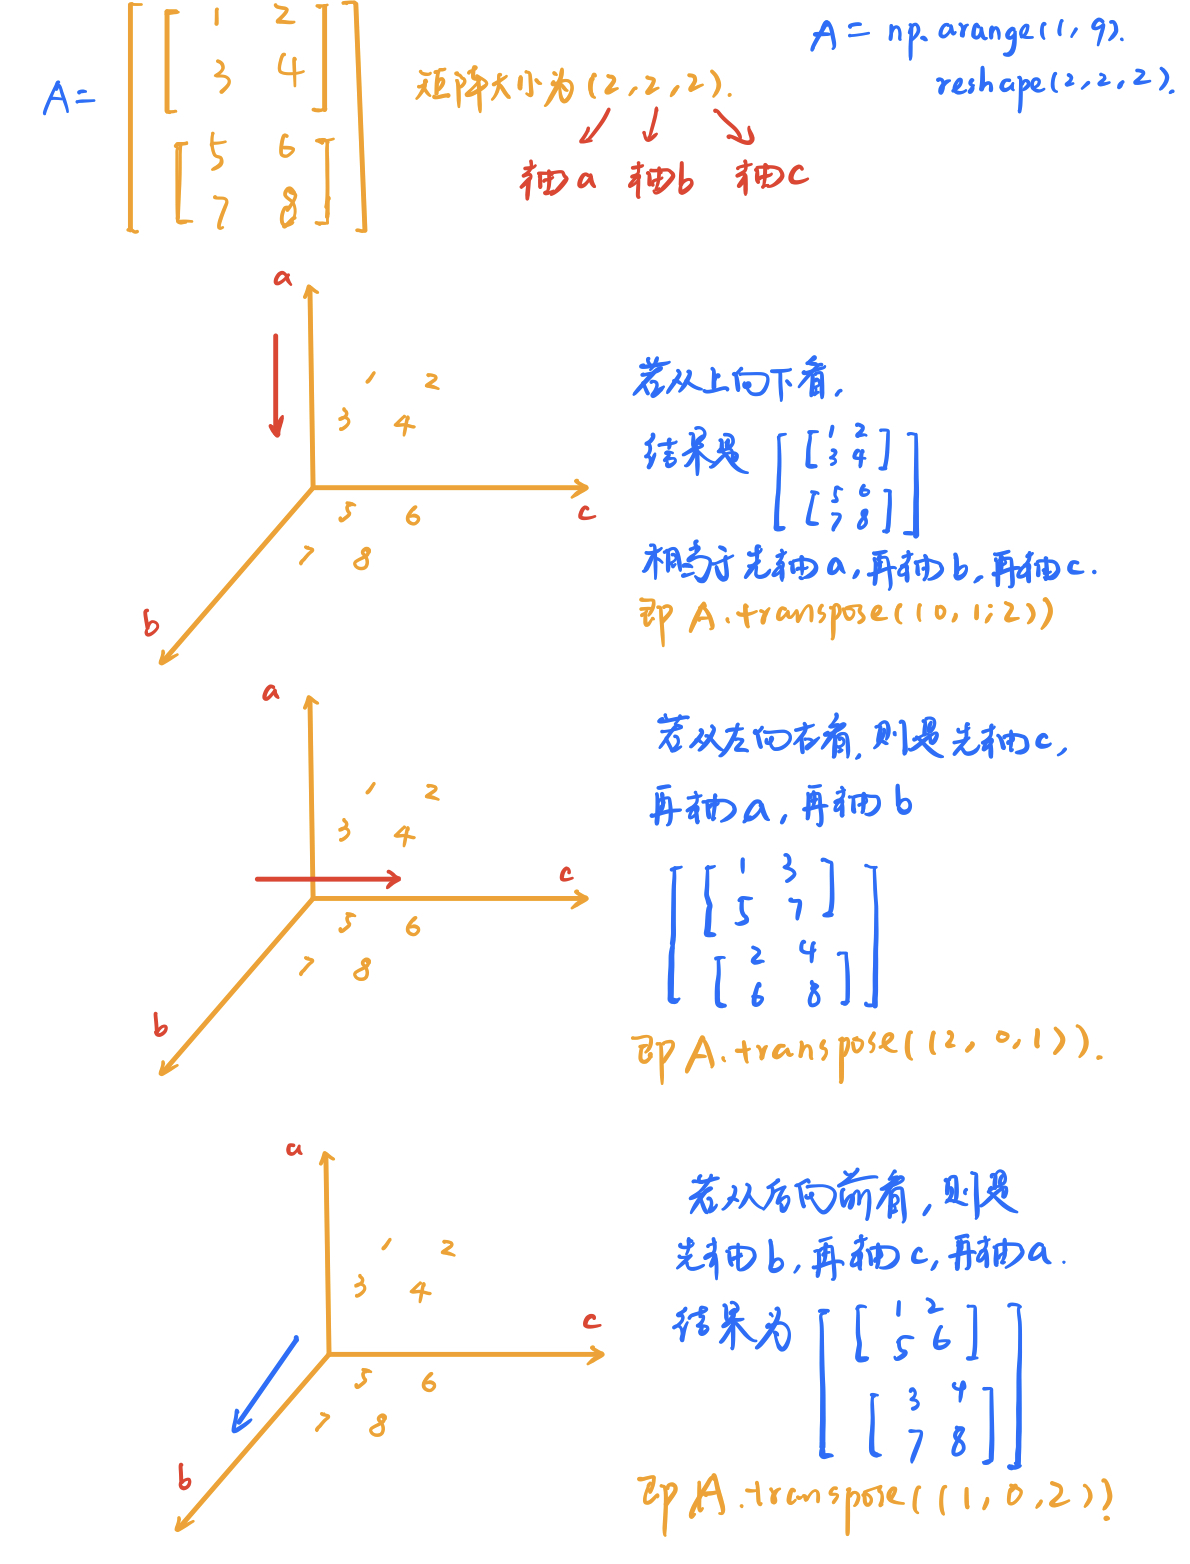 A= [ [ 1 2
3 4 ]
[ 5 6
7 8 ] ]
矩阵大小为(2,2,2).
轴a 轴b 轴c
A= np.arange(1,9).
reshape(2,2,2).
a
1 2
3 4
c
5 6
7 8
b
若从上向下看,
结果是 [ [ 1 2
3 4 ]
[ 5 6
7 8 ] ]
相当于先轴a,再轴b,再轴c.
即 A.transpose((0,1,2))
a
1 2
3 4
c
5 6
7 8
b
若从左向右看,则是先轴c,
再轴a,再轴b
[ [ 1 3
5 7 ]
[ 2 4
6 8 ] ]
即 A.transpose((2,0,1)).
a
1 2
3 4
c
5 6
7 8
b
若从后向前看,则是
先轴b,再轴c,再轴a.
结果为 [ [ 1 2
5 6 ]
[ 3 4
7 8 ] ]
即 A.transpose((1,0,2)).